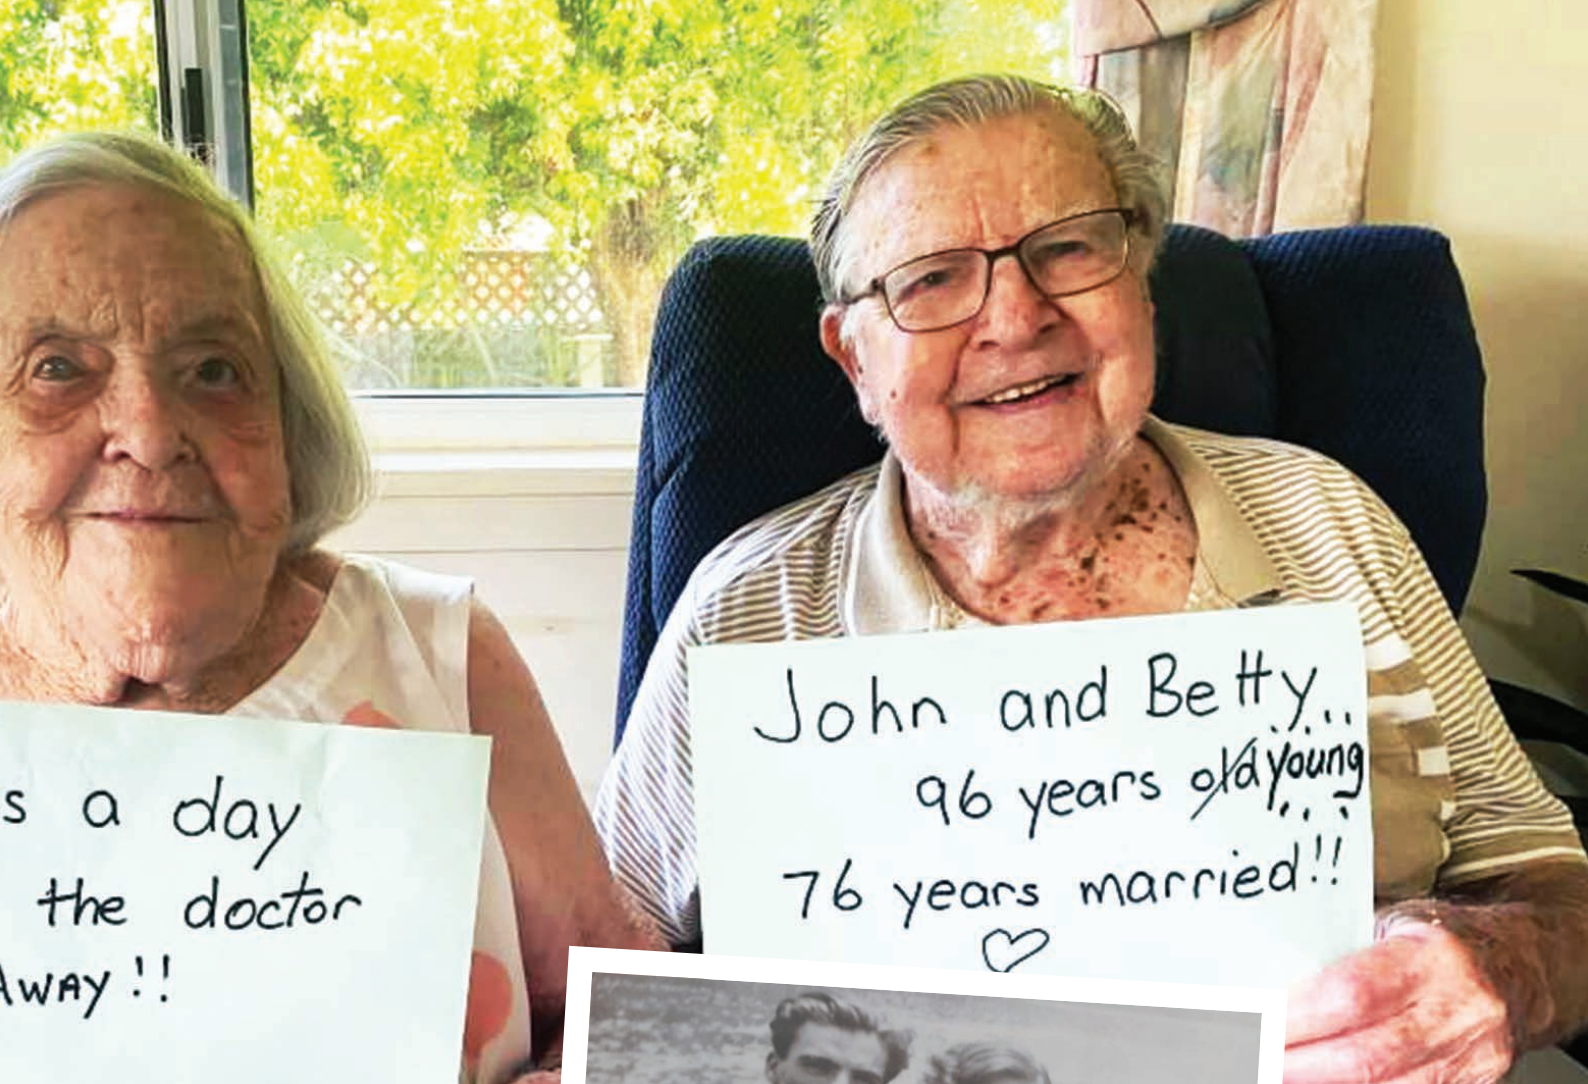 s a day
the doctor
AWAY!!
John and Betty..
96 years old young
76 years married!!